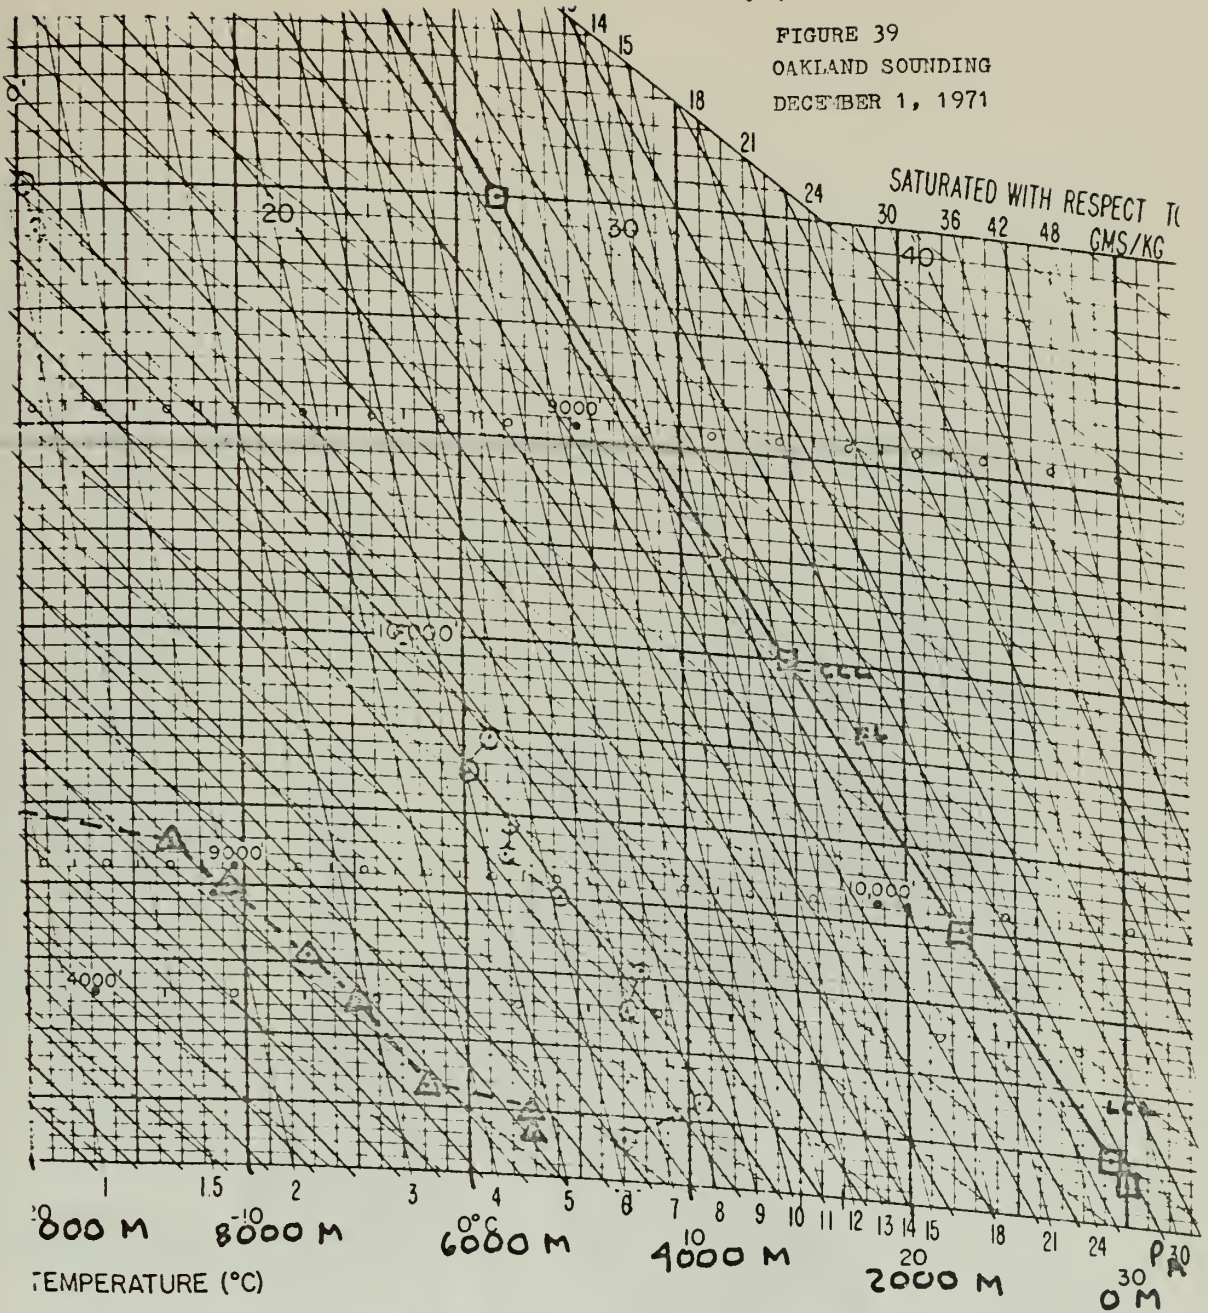 14
15
FIGURE 39
OAKLAND SOUNDING
DECEMBER 1, 1971
18
21
24
SATURATED WITH RESPECT
30 36 42 48 GMS/KG
20
30
40
9000'
10,000'
CCL
FL
9000
10,000'
4000'
LCL
1 1.5 2 3 4 5 6 7 8 9 10 11 12 13 14 15 18 21 24 30
-10 0°C 10 20 30
000 M 8000 M 6000 M 4000 M 2000 M 0 M
TEMPERATURE (°C)